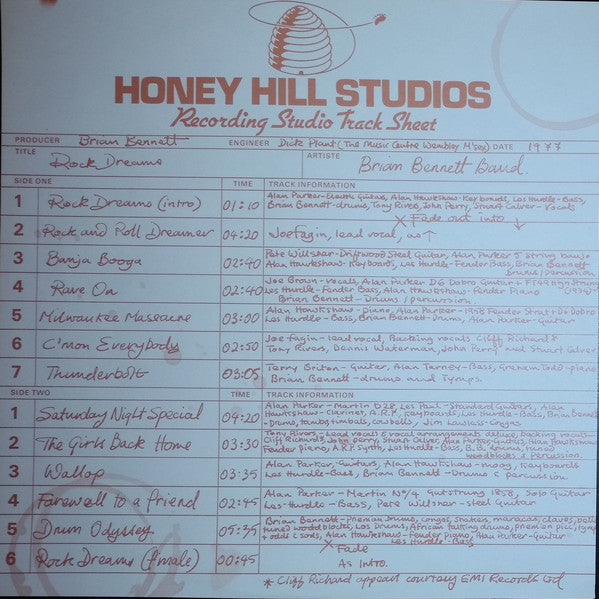 HONEY HILL STUDIOS
Recording Studio Track Sheet
PRODUCER Brian Bennett ENGINEER Dick Plant (The Music Centre Wembley M'sex) DATE 1977
TITLE Rock Dreams ARTISTE Brian Bennett Band.
SIDE ONE TIME TRACK INFORMATION
1 Rock Dreams (intro) 01:10 Alan Parker-Electric Guitars, Alan Hawkshaw-Keyboards, Les Hurdle-Bass,
Brian Bennett-drums, Tony Rivers, John Perry, Stuart Calver-vocals
X Fade out into ↓
2 Rock and Roll Dreamer 04:20 Joe Fagin, lead vocal, as ↑
3 Banja Booga 02:40 Pete Willsher-Driftwood Steel Guitar, Alan Parker 5 string banjo
Alan Hawkshaw-Keyboards, Les Hurdle-Fender Bass, Brian Bennett
drums/percussion.
4 Rave On 02:40 Joe Brown-vocals, Alan Parker D6 Dobro Guitar + high string
Les Hurdle-Fender Bass, Alan Hawkshaw-Fender Piano
Brian Bennett-Drums/percussion.
5 Milwaukee Massacre 03:00 Alan Hawkshaw-piano, Alan Parker-1958 Fender Strat + D6 Dobro
Les Hurdle-Bass, Brian Bennett-Drums, Alan Parker-Guitar
6 C'mon Everybody 02:50 Joe Fagin-lead vocal, Backing vocals Cliff Richard*
Tony Rivers, Dennis Waterman, John Perry and Stuart Calver
7 Thunderbolt 03:05 Terry Briton-Guitar, Alan Tarney-Bass, Graham Todd-piano
Brian Bennett-drums and Tymps.
SIDE TWO TIME TRACK INFORMATION
1 Saturday Night Special 04:20 Alan Parker-Martin D28 Les Paul-Standard Guitars, Alan
Hawkshaw-Clarinet, A.R.P, Keyboards, Les Hurdle-Bass, Brian Bennett
-Drums, tamb, timbals, cowbells, Jim Lawless-Congas
2 The Girls Back Home 03:30 Tony Rivers-Lead vocals & vocal arrangements deluxe, backing vocals-
Cliff Richard*, John Perry, Stuart Calver, Alan Parker, Guitars, Alan Hawkshaw
Fender piano, A.R.P. Synth, Les Hurdle-Bass, B.B. Drums, tuned
woodblocks & Percussion.
3 Wallop 03:35 Alan Parker, Guitars, Alan Hawkshaw-moog, Keyboards
Les Hurdle-Bass, Brian Bennett-Drums & percussion.
4 Farewell to a Friend 02:45 Alan Parker-Martin Nº/4 Gutstrung 1858, Solo Guitar
Les Hurdle-Bass, Pete Willsher-steel Guitar
5 Drum Odyssey 05:35 Brian Bennett-Drums, congas, shakers, maracas, claves, bells
tuned woodblocks, Log Drums, African talking drums, tymps
+ odds & sods, Alan Hawkshaw-Fender piano, Alan Parker-Guitar
Les Hurdle-Bass
X Fade
6 Rock Dreams (finale) 00:45 As Intro.
* Cliff Richard appears courtesy EMI Records Ltd